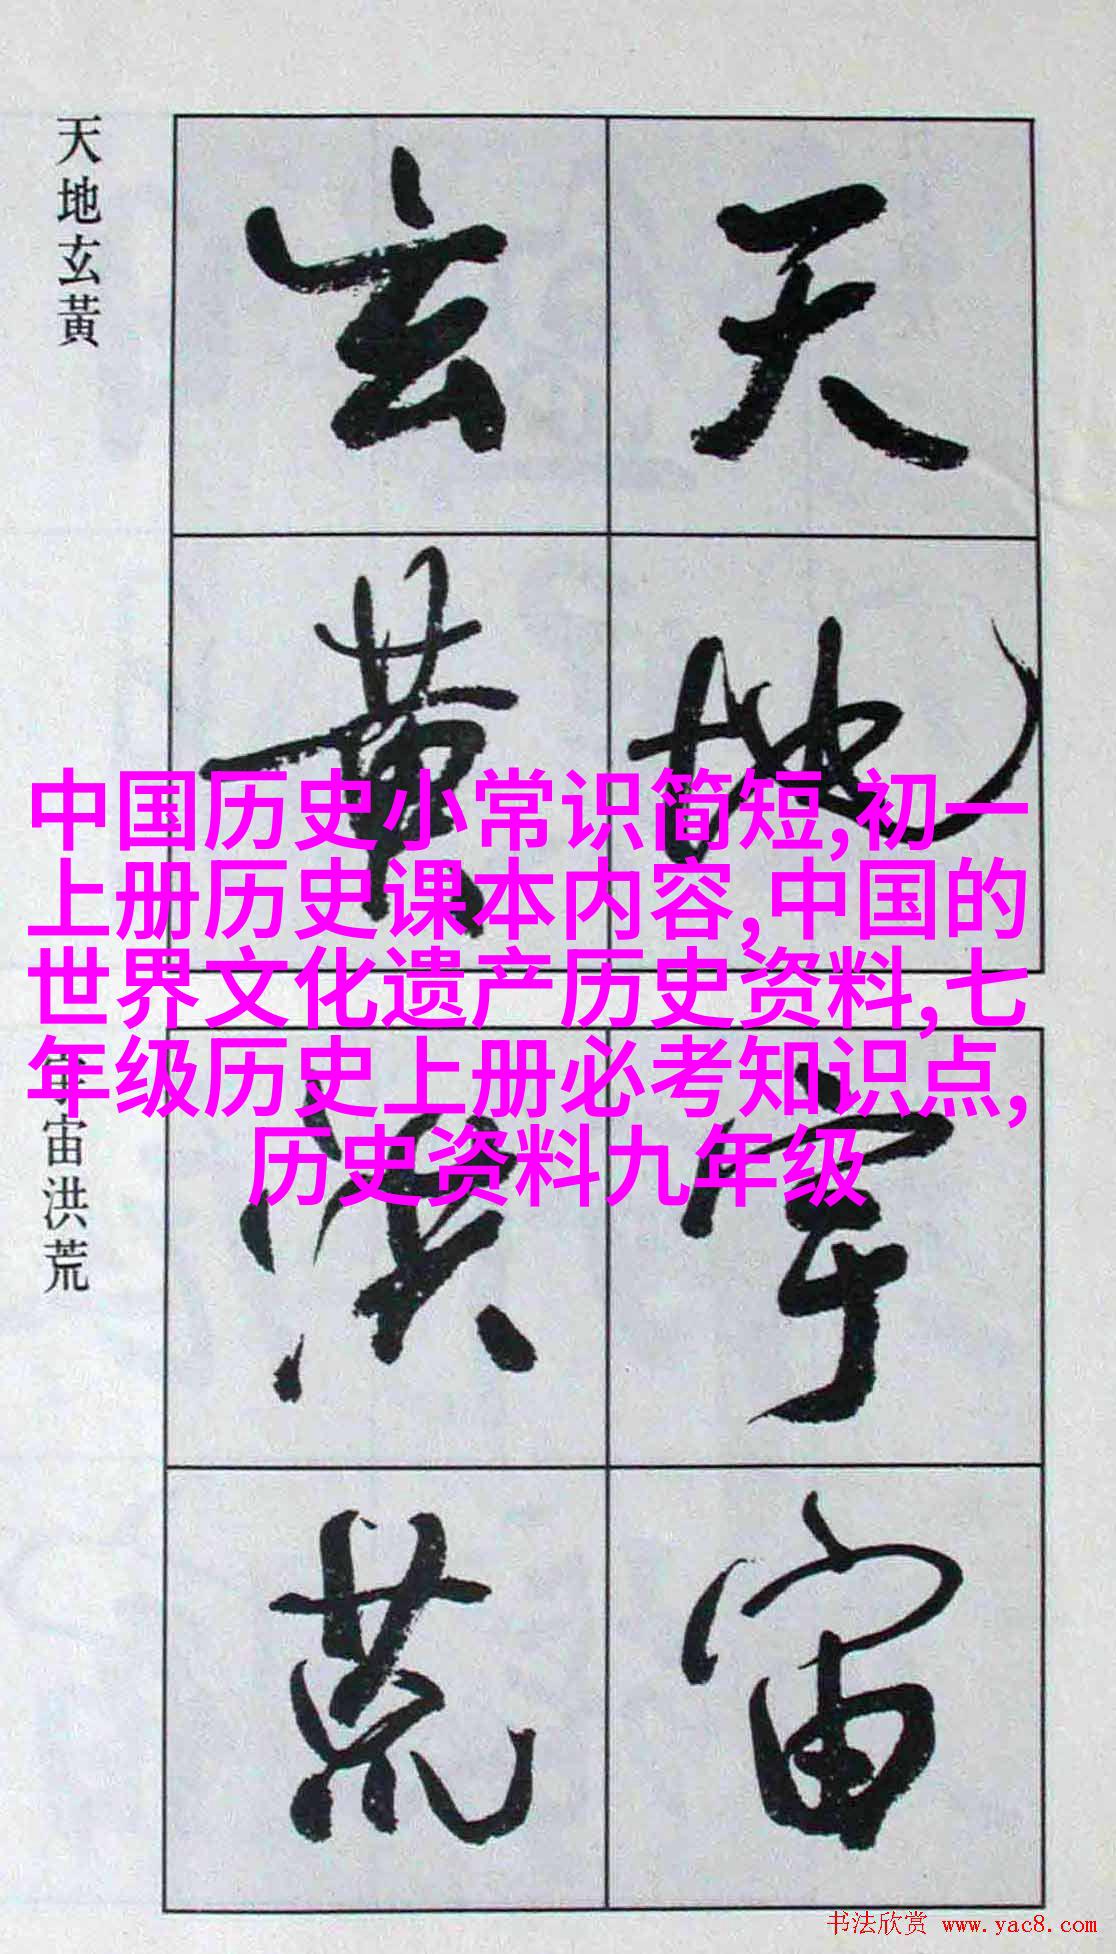 天地玄黃
天地
玄黃
中国历史小常识简短,初一
上册历史课本内容,中国的
世界文化遗产历史资料,七
年级历史上册必考知识点,
历史资料九年级
宇宙洪荒
宇宙
洪荒
书法欣赏 www.yac8.com